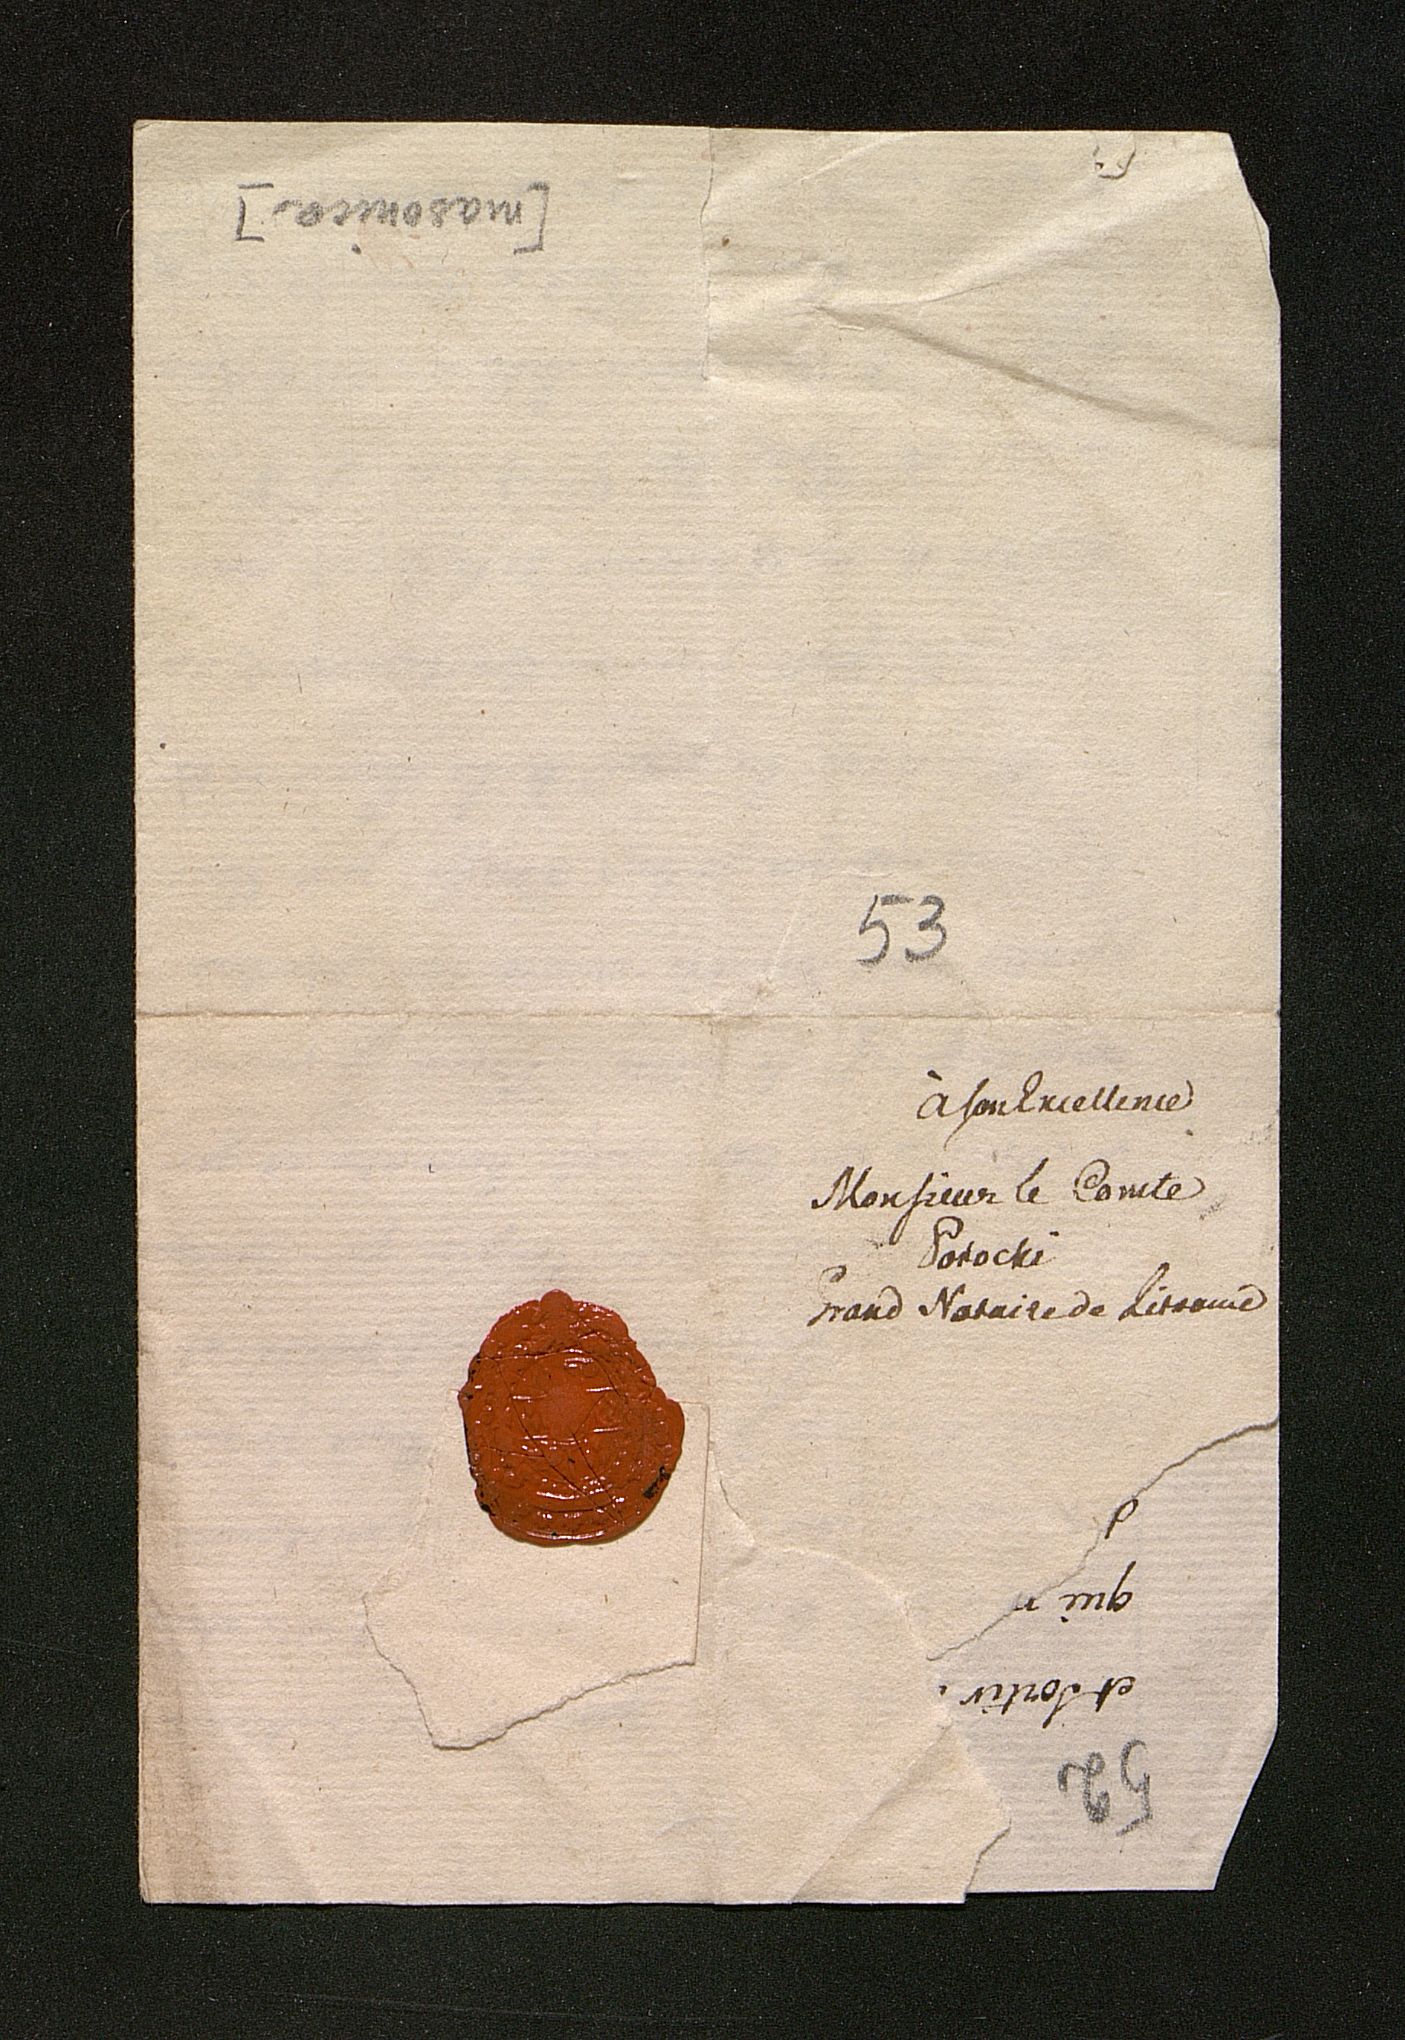 [masonica]
53
à son Excellence
Monsieur le Comte
Potocki
Grand Notaire de Littuanie
qui
et sortir
52